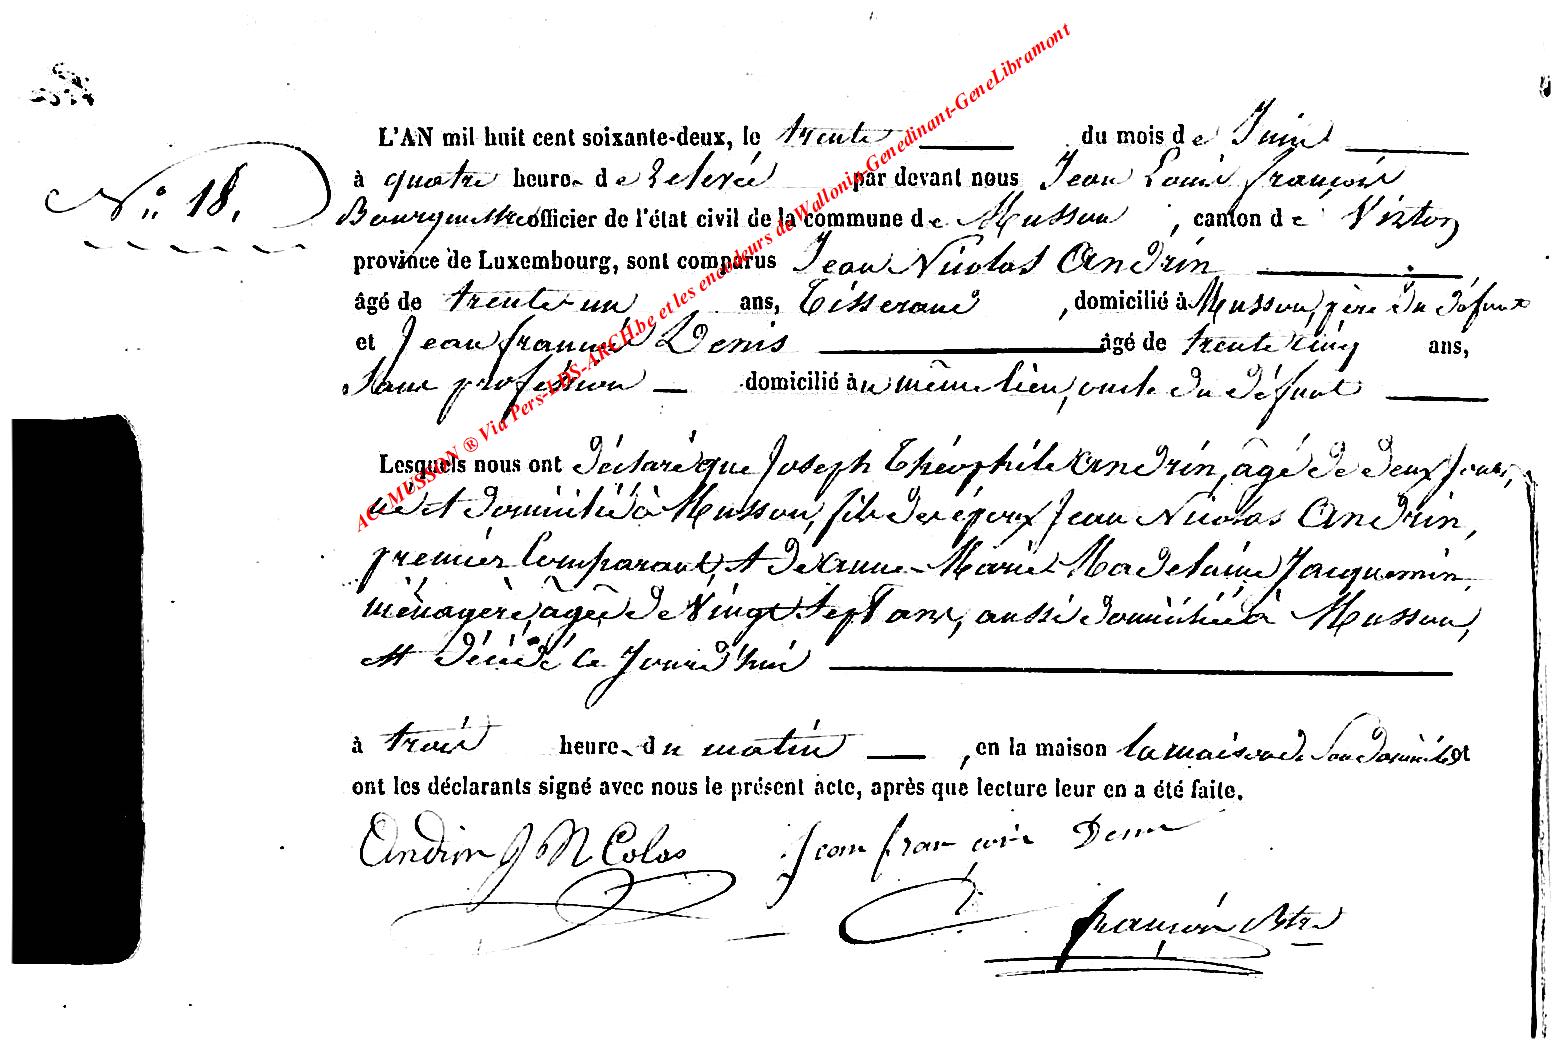 N.° 18.
L'AN mil huit cent soixante-deux, le trente du mois de Juin
à quatre heure de relevée par devant nous Jean Louis françois
Bourgmestre officier de l'état civil de la commune de Musson, canton de Virton
province de Luxembourg, sont comparus Jean Nicolas Andrin
âgé de trente un ans, tisserand, domicilié à Musson, père du défunt
et Jean françois Denis âgé de trente cinq ans,
sans profession domicilié au même lieu, oncle du défunt
Lesquels nous ont déclaré que Joseph Théophile Andrin, âgé de deux jours,
né et domicilié à Musson, fils des époux Jean Nicolas Andrin,
premier Comparant, et de Anne Marie Madelaine Jacquemin,
ménagère, âgée de Vingt sept ans, aussi domiciliée à Musson,
est décédé ce Jourd'hui
à trois heure du matin, en la maison la maison de son domicile et
ont les déclarants signé avec nous le présent acte, après que lecture leur en a été faite.
Andrin J N Colas Jean françois Denis
françois Btre
AC-MUSSON ® Via Pers-LDS-ARCH.be et les encodeurs de Wallonia-Genedinant-GeneLibramont